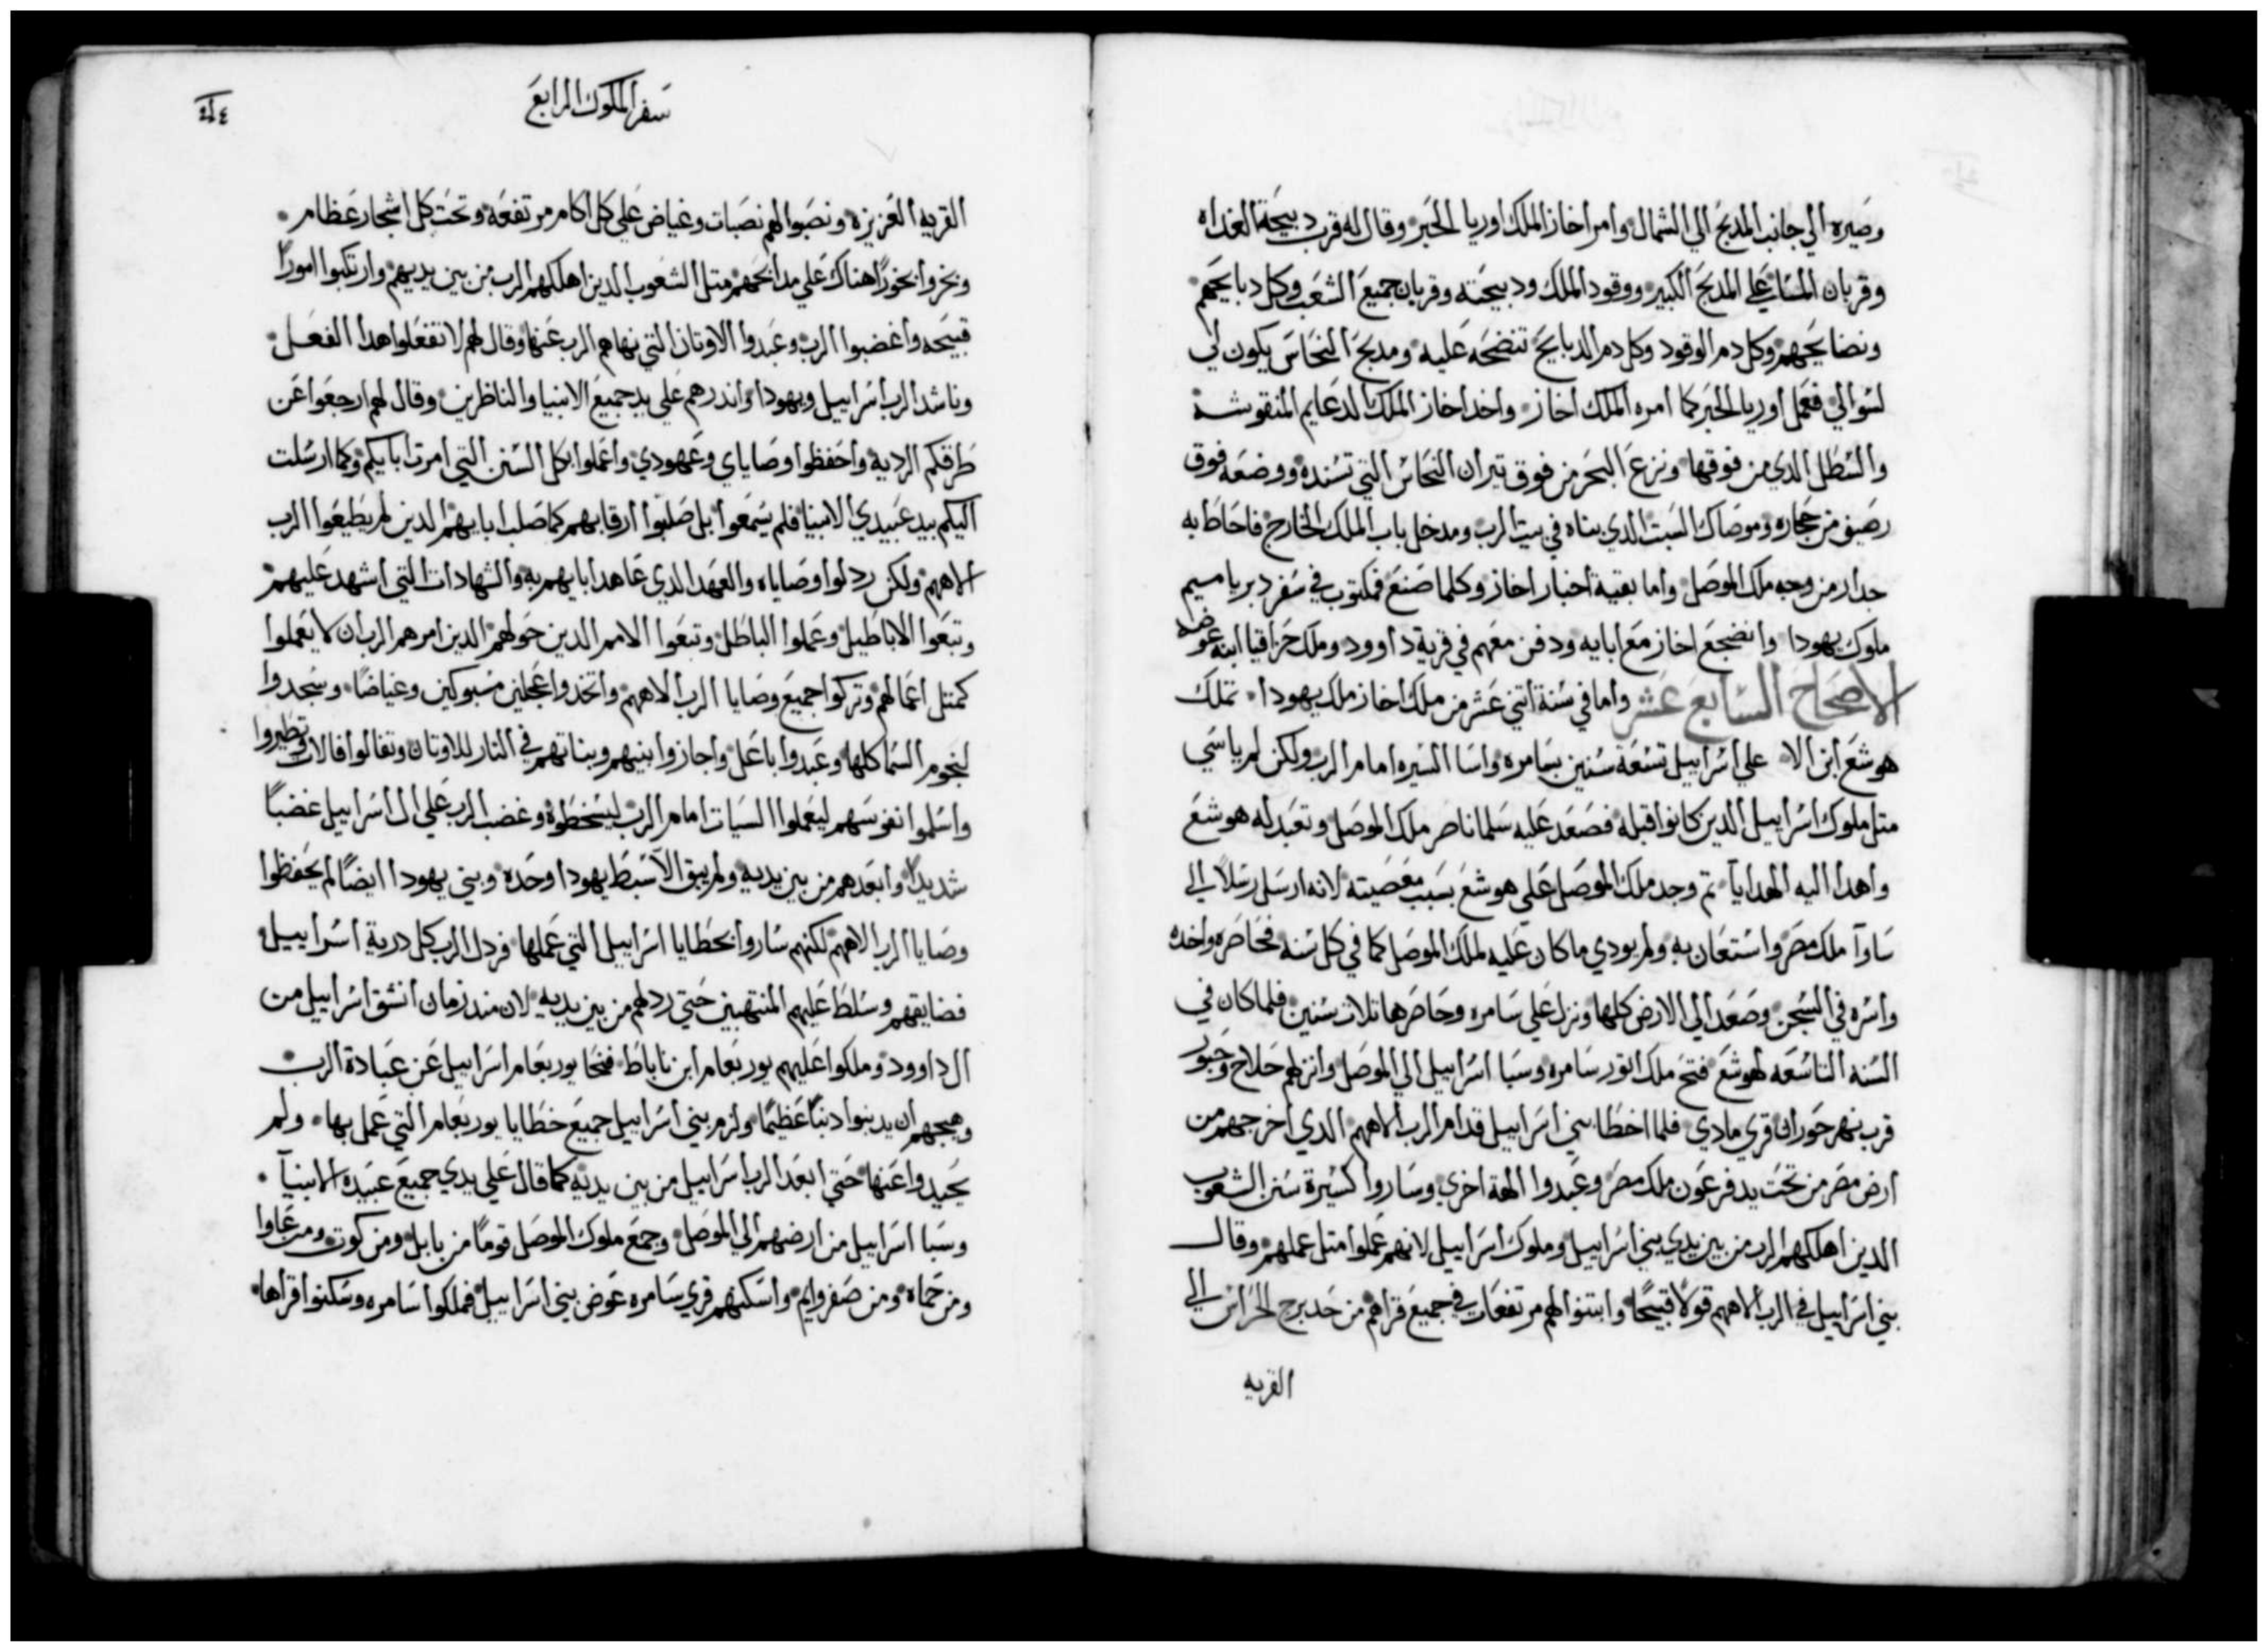 وصيره الي جانب المدبح الي الشمال وامر اخاز الملك اوريا الحبر وقال له قرب دبيحة الغداه
وقربان المسا علي المدبح الكبير ووقود الملك ودبيحته وقربان جميع الشعب وكل دبايحهم
ونضايحهم وكل دم الوقود وكل دم الدبايح تنضحه عليه ومدبح النحاس يكون لي
لسوالي فعمل اوريا الحبر كما امره الملك اخاز واخد اخاز الملك الدعايم المنقوشه
والسطل الدي من فوقها ونزع البحر من فوق تيران النحاس التي تسنده ووضعه فوق
رصيف من حجاره وموصاك السبت الدي بناه في بيت الرب ومدخل باب الملك الخارج فاحاط به
جدار من وجه ملك الموصل واما بقية اخبار اخاز وكلما صنع فمكتوب في سفر دبرياميم
ملوك يهودا وانضجع اخاز مع ابايه ودفن معهم في قرية داوود وملك حزاقيا ابنه عوضه
الاصحاح السابع عشر واما في سنة اتني عشر من ملك اخاز ملك يهودا تملك
هوشع ابن الا علي اسراييل تسعة سنين بسامره واسا السيره امام الرب ولكن لم ياسي
متل ملوك اسراييل الدين كانوا قبله فصعد عليه سلماناصر ملك الموصل وتعبد له هوشع
واهدا اليه الهدايا تم وجد ملك الموصل علي هوشع بسبب معصيته لانه ارسل رسلاً الي
ساوا ملك مصر واستعان به ولم يودي ما كان عليه لملك الموصل كما في كل سنه فحاصره واخده
واسره في السجن وصعد الي الارض كلها ونزل علي سامره وحاصرها تلات سنين فلما كان في
السنه التاسعه لهوشع فتح ملك اتور سامره وسبا اسراييل الي الموصل وانزلهم حلاح وحبور
قرب نهر حوران قري مادي فلما اخطا بني اسراييل قدام الرب الاههم الدي اخرجهم من
ارض مصر من تحت يد فرعون ملك مصر وعبدوا الهة اخري وساروا كسيرة سنن الشعوب
الدين اهلكهم الرب من بين يدي بني اسراييل وملوك اسراييل لانهم عملوا متل عملهم وقال
بني اسراييل في الرب الاههم قولاً قبيحًا وابتنوا لهم مرتفعات في جميع قراهم من حد برج الحراس الي
القريه
سفر الملوك الرابع
القريه العزيزه ونصبوا لهم نصبات وغياض علي كل اكام مرتفعة وتحت كل اشجار عظام
وبخروا بخورًا هناك علي مدابحهم متل الشعوب الدين اهلكهم الرب من بين يديهم وارتكبوا امورًا
قبيحه واغضبوا الرب وعبدوا الاوتان التي نهاهم الرب عنها وقال لهم لا تفعلوا هدا الفعل
وناشد الرب اسراييل ويهودا واندرهم علي يد جميع الانبيا والناظرين وقال لهم ارجعوا عن
طرقكم الرديه واحفظوا وصاياي وعهودي واعملوا بكل السنن التي امرت ابايكم وكما ارسلت
اليكم بيد عبيدي الانبيا فلم يسمعوا بل صلبوا ارقابهم كما صلب ابايهم الدين لم يطيعوا الرب
الاههم ولكن ردلوا وصاياه والعهد الدي عاهد ابايهم به والشهادات التي اشهد عليهم
وتبعوا الاباطيل وعملوا الباطل وتبعوا الامم الدين حولهم الدين امرهم الرب ان لا يعملوا
كمتل اعمالهم وتركوا جميع وصايا الرب الاههم واتخدوا عجلين مسبوكين وغياضًا وسجدوا
لنجوم السما كلها وعبدوا باعل واجازوا بنيهم وبناتهم في النار للاوتان وتفالوا فالات وتطيروا
واسلموا نفوسهم ليعملوا السيات امام الرب ليسخطوه وغضب الرب علي ال اسراييل غضبًا
شديدًا وابعدهم من بين يديه ولم يبق الا سبط يهودا وحده وبني يهودا ايضًا لم يحفظوا
وصايا الرب الاههم لكنهم ساروا بخطايا اسراييل التي عملها فردل الرب كل درية اسراييل
فضايقهم وسلط عليهم المنتهبين حتي ردلهم من بين يديه لان مند زمان انشق اسراييل من
ال داوود وملكوا عليهم يوربعام ابن ناباط فنحا يوربعام اسراييل عن عبادة الرب
وهيجهم ان يدنبوا دنبًا عظيمًا ولزم بني اسراييل جميع خطايا يوربعام التي عمل بها ولم
يحيدوا عنها حتي ابعد الرب اسراييل من بين يديه كما قال علي يدي جميع عبيده الانبيا
وسبا اسراييل من ارضهم الي الموصل وجمع ملوك الموصل قومًا من بابل ومن كوت ومن عاوا
ومن حماه ومن صفروايم واسكنهم قري سامره عوض بني اسراييل فملكوا سامره وسكنوا قراها